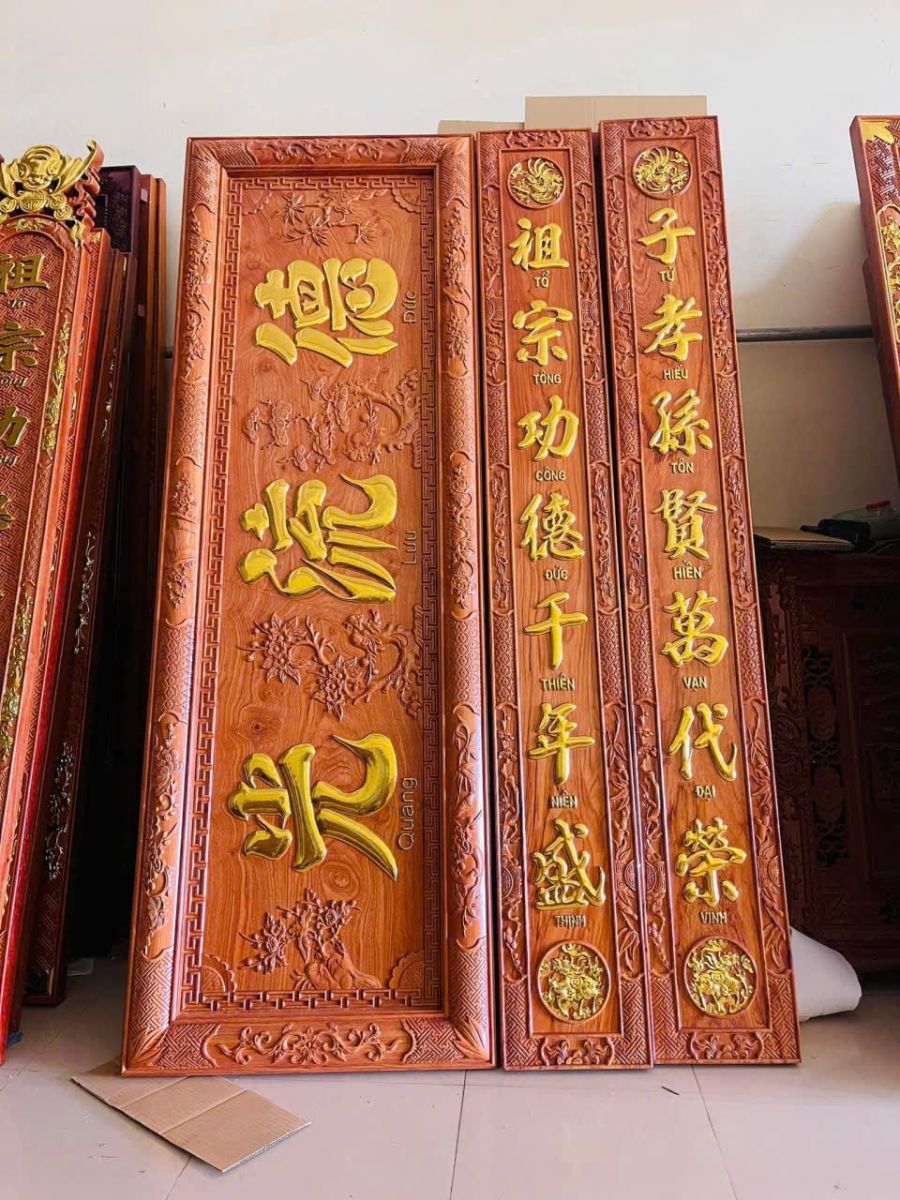 祖宗功
德流光
Đức Lưu Quang
祖宗功德千年盛
TỔ TÔNG CÔNG ĐỨC THIÊN NIÊN THỊNH
子孝孫賢萬代榮
TỬ HIẾU TÔN HIỀN VẠN ĐẠI VINH